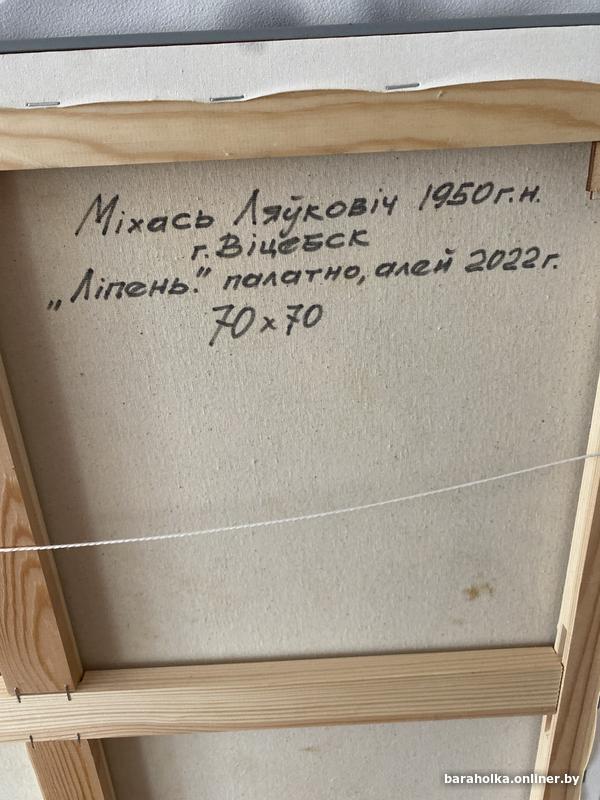 Міхась Ляўковіч 1950г.н.
г.Віцебск
„Ліпень." палатно, алей 2022г.
70x70
baraholka.onliner.by